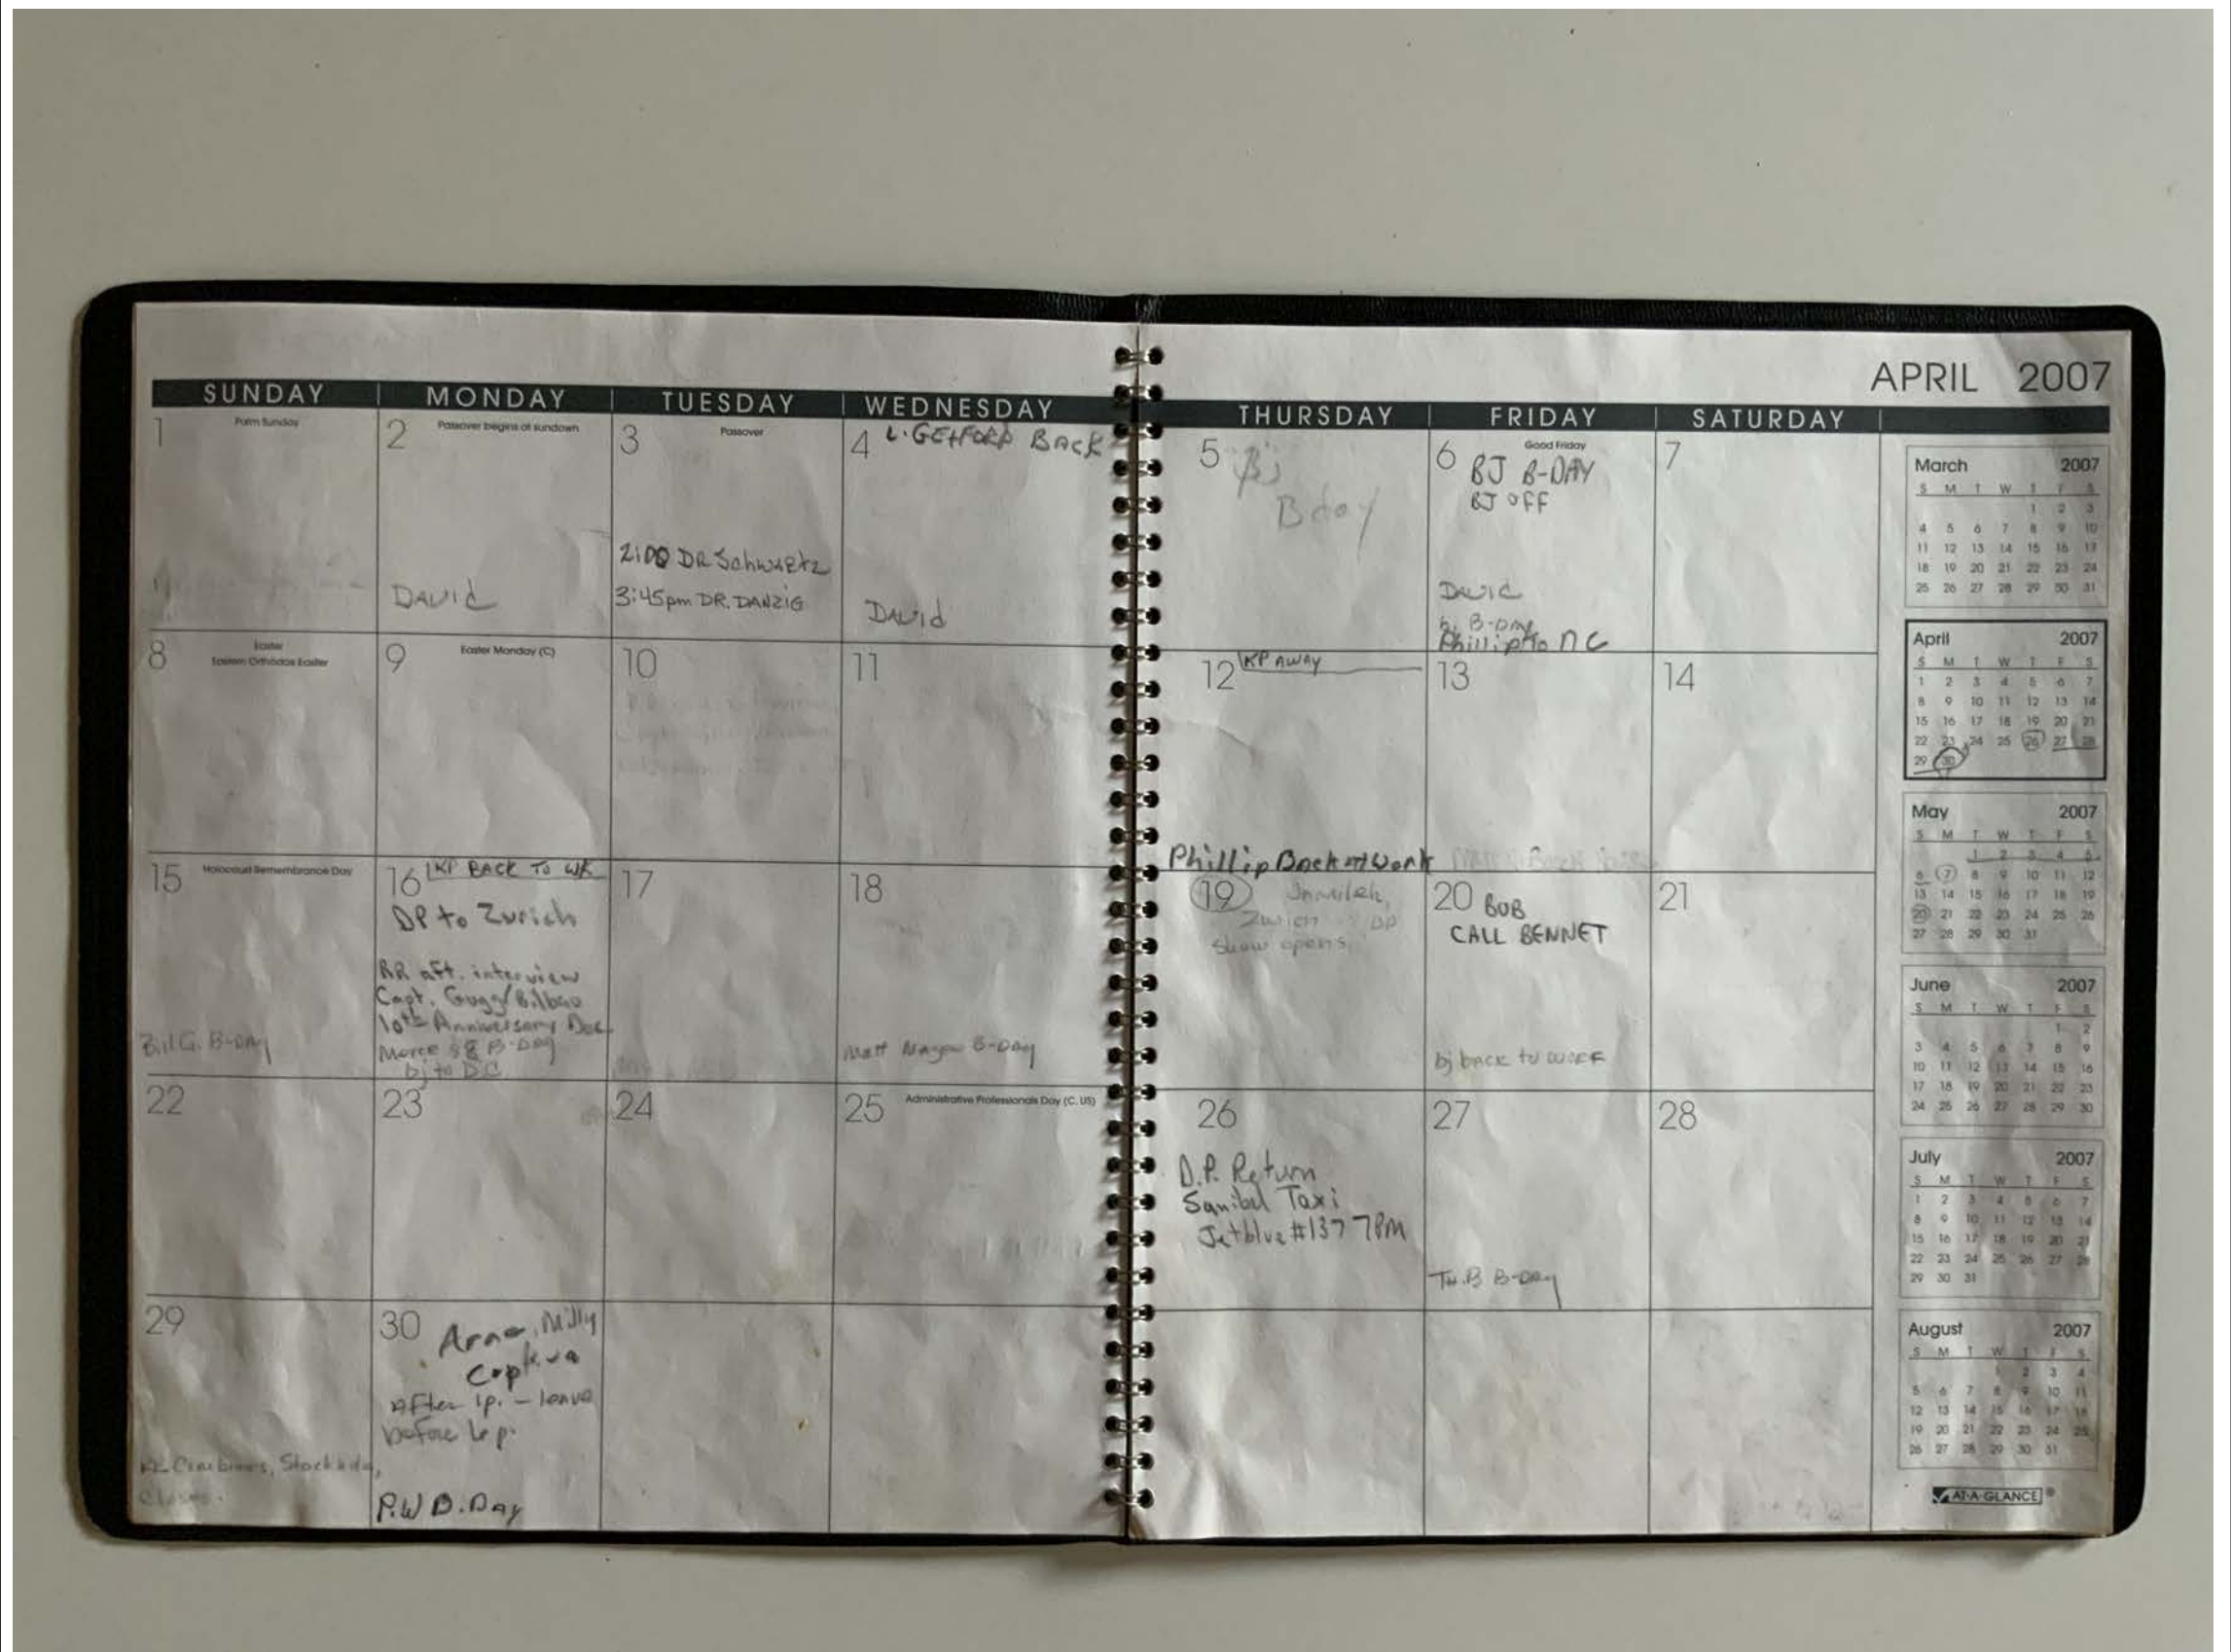 APRIL 2007
SUNDAY MONDAY TUESDAY WEDNESDAY THURSDAY FRIDAY SATURDAY
1 Palm Sunday
2 Passover begins at sundown
David
3 Passover
2:00 DR Schwartz
3:45pm DR. DANZIG
4 L. GETFORD BACK
David
5 Bj
Bday
6 Good Friday
BJ B-DAY
BJ OFF
David
B-DAY
Phillip to NC
7
8 Easter
Eastern Orthodox Easter
9 Easter Monday (C)
10
11
12 KP AWAY
Phillip Back at Work
13
14
15 Holocaust Remembrance Day
Bill G. B-DAY
16 KP BACK TO WK
DP to Zurich
RR aft. interview
Capt. Gugg/Bilbao
10th Anniversary Doc.
B-Day
bj to DC
17
18
Matt B-Day
19
Zurich DP
Show opens
20 BOB
CALL BENNET
bj back to work
21
22
23
24
25 Administrative Professionals Day (C, US)
26
D.P. Return
Sanibel Taxi
Jetblue #137 7PM
27
B-DAY
28
29
Combines, Stockholm,
closes.
30 Arne, Milly
After 1p. - leave
before
P.W B.Day
March 2007
S M T W T F S
1 2 3
4 5 6 7 8 9 10
11 12 13 14 15 16 17
18 19 20 21 22 23 24
25 26 27 28 29 30 31
April 2007
S M T W T F S
1 2 3 4 5 6 7
8 9 10 11 12 13 14
15 16 17 18 19 20 21
22 23 24 25 26 27 28
29 30
May 2007
S M T W T F S
1 2 3 4 5
6 7 8 9 10 11 12
13 14 15 16 17 18 19
20 21 22 23 24 25 26
27 28 29 30 31
June 2007
S M T W T F S
1 2
3 4 5 6 7 8 9
10 11 12 13 14 15 16
17 18 19 20 21 22 23
24 25 26 27 28 29 30
July 2007
S M T W T F S
1 2 3 4 5 6 7
8 9 10 11 12 13 14
15 16 17 18 19 20 21
22 23 24 25 26 27 28
29 30 31
August 2007
S M T W T F S
1 2 3 4
5 6 7 8 9 10 11
12 13 14 15 16 17 18
19 20 21 22 23 24 25
26 27 28 29 30 31
AT-A-GLANCE®